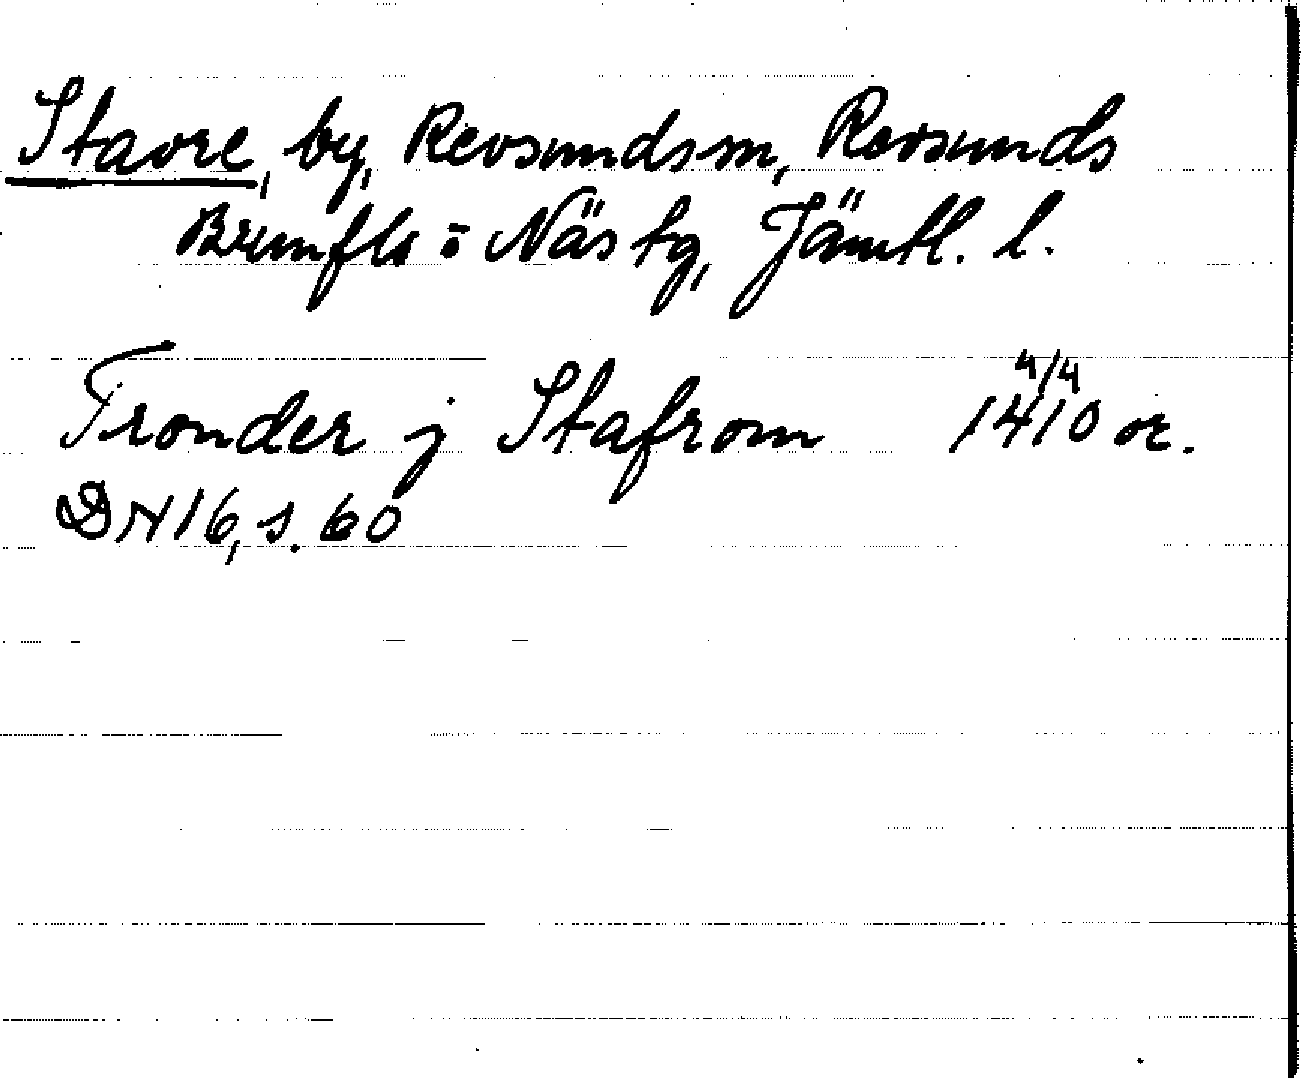 Stavre, by, Revsunds sn, Revsunds
Brunflo o Näs tg, Jämtl. l.
Tronder j Stafrom 4/4 1410 or.
DN 16, s. 60